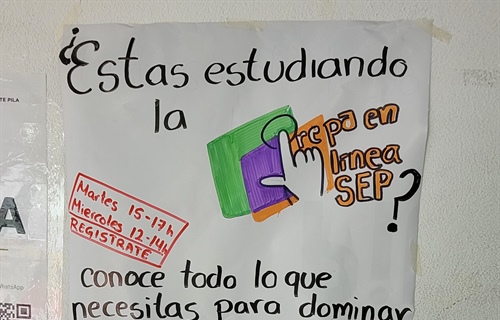 ¿Estas estudiando
la
prepa en
línea
SEP?
Martes 15-17h
Miercoles 12-14h
REGISTRATE
conoce todo lo que
necesitas para dominar
TE PILA
A
WhatsApp